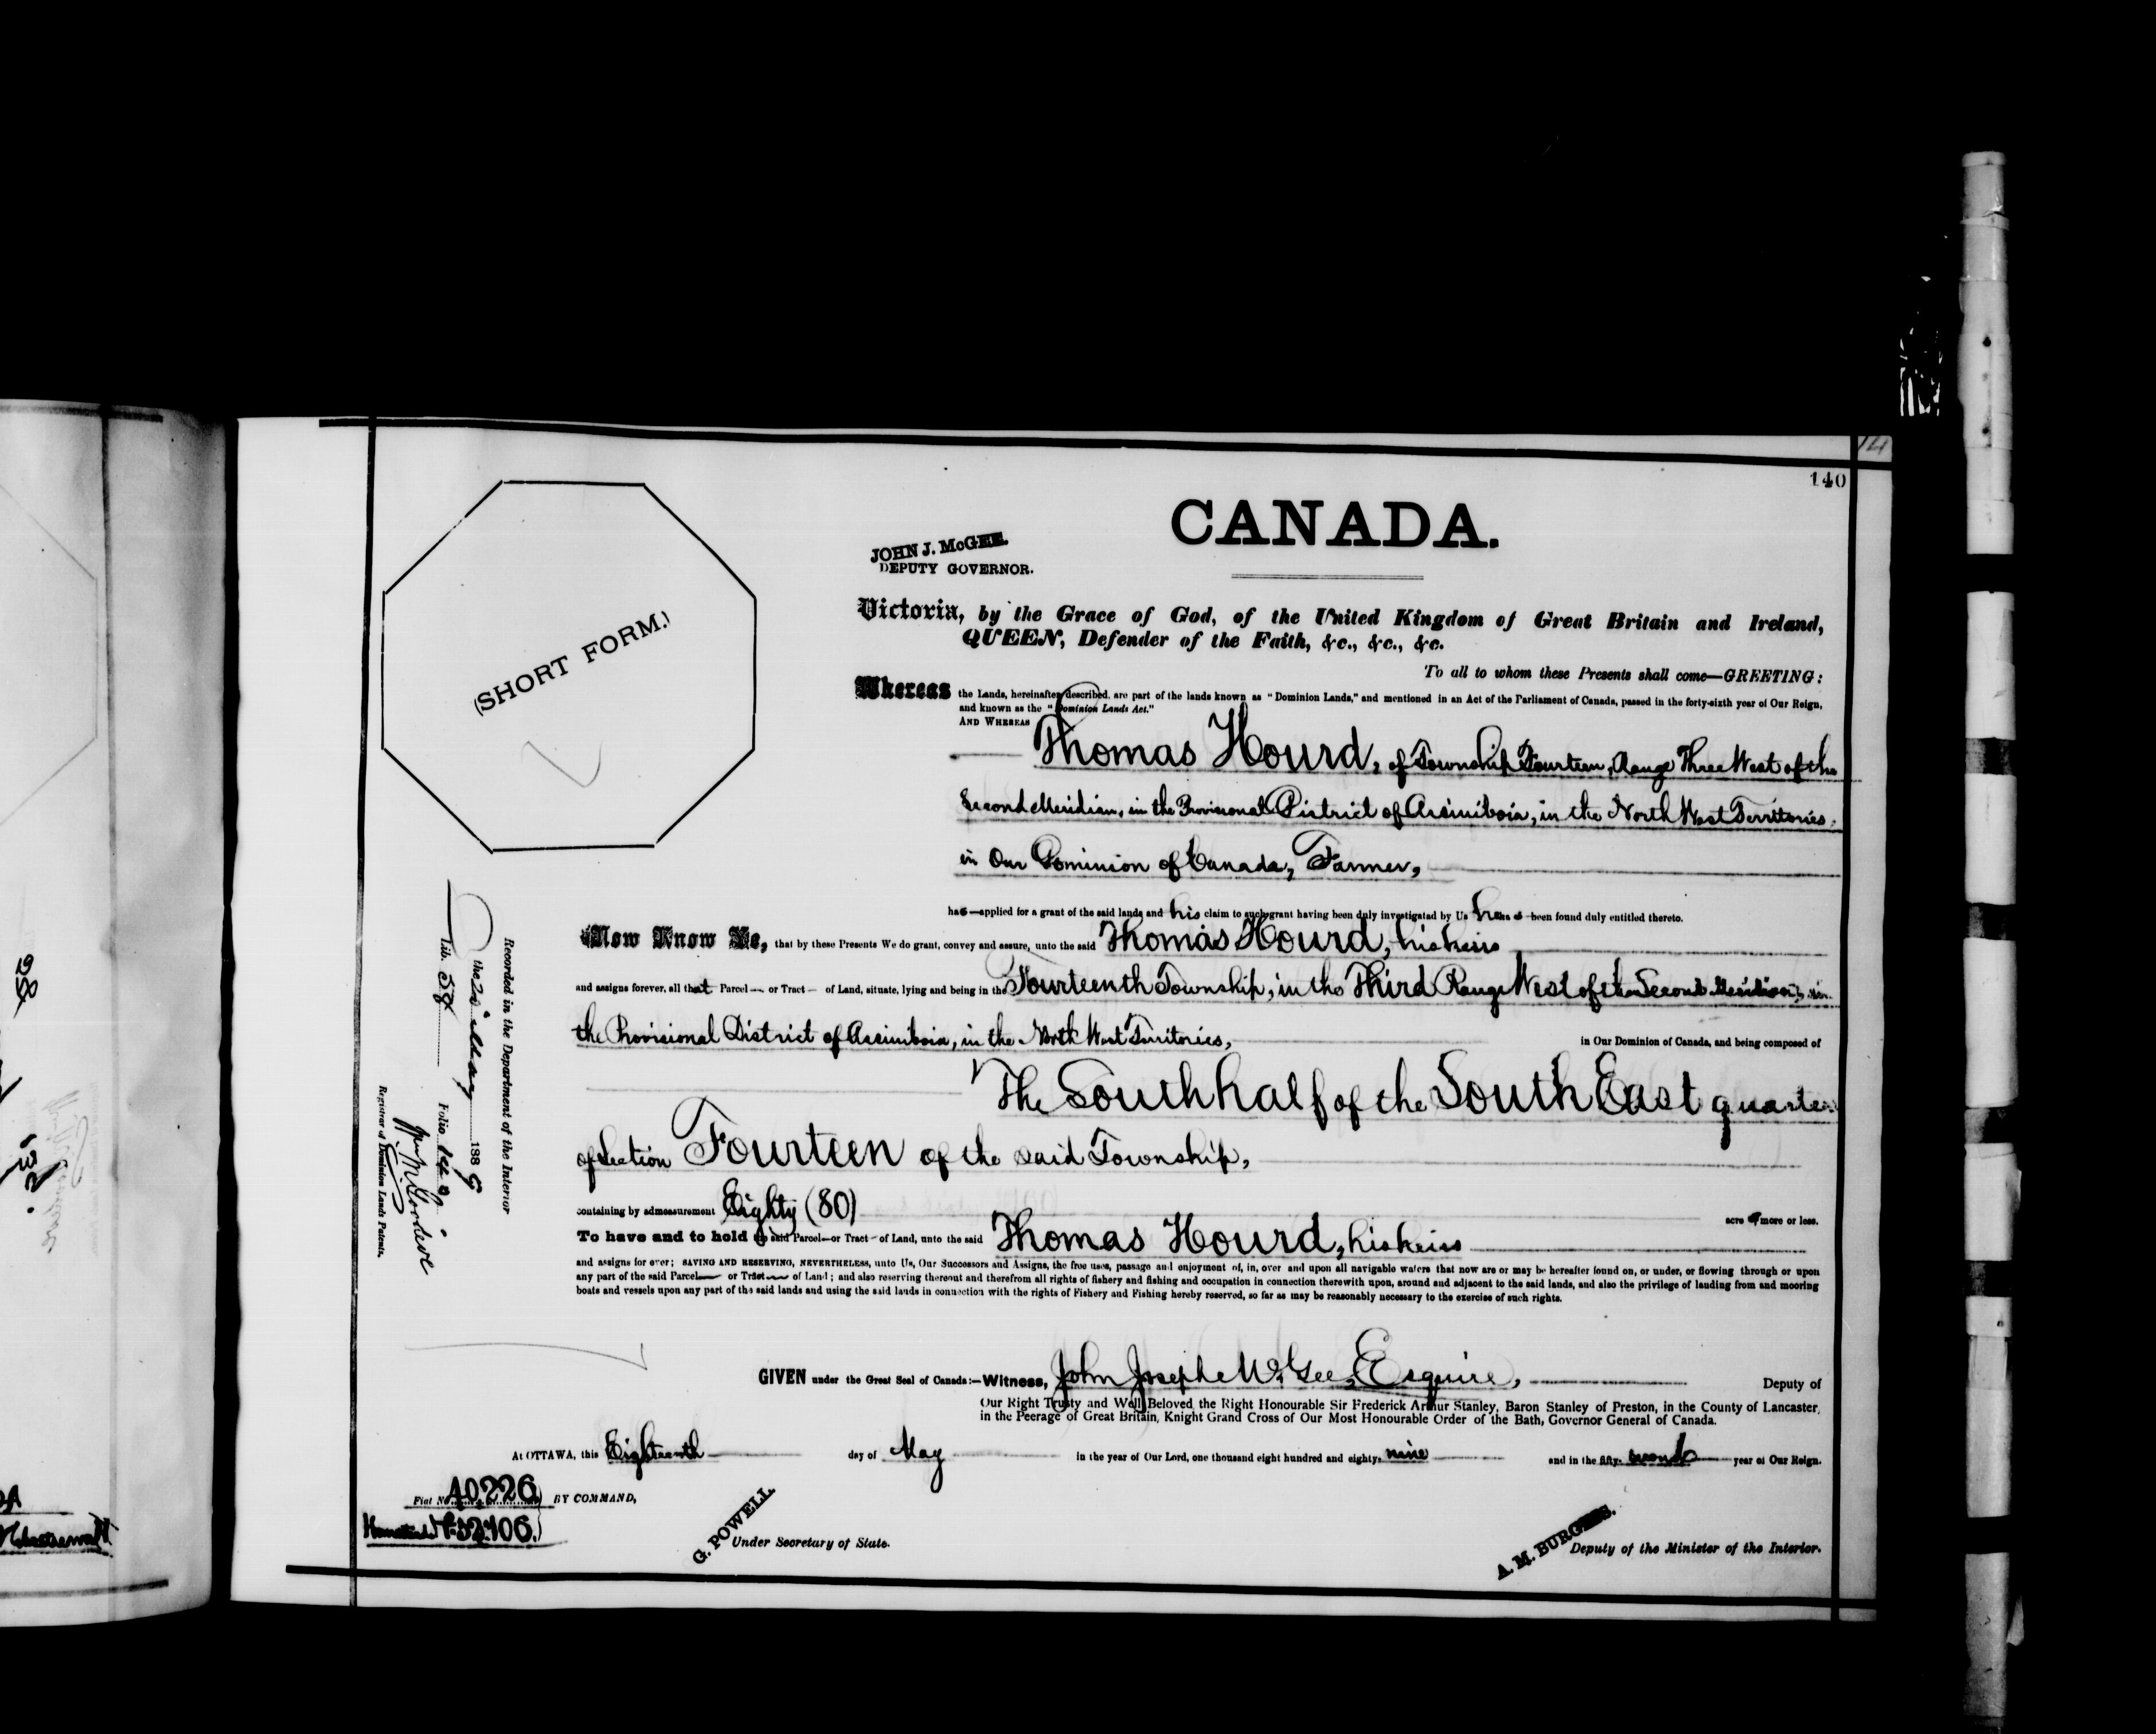 140
CANADA.
JOHN J. McGEE.
DEPUTY GOVERNOR.
(SHORT FORM.)
Victoria, by the Grace of God, of the United Kingdom of Great Britain and Ireland,
QUEEN, Defender of the Faith, &c., &c., &c.
To all to whom these Presents shall come—GREETING:
Whereas the Lands, hereinafter described, are part of the lands known as "Dominion Lands," and mentioned in an Act of the Parliament of Canada, passed in the forty-sixth year of Our Reign,
and known as the "Dominion Lands Act."
AND WHEREAS
Thomas Hourd, of Township Fourteen, Range Three West of the
Second Meridian, in the Provisional District of Assiniboia, in the North West Territories,
in Our Dominion of Canada, Farmer,
has—applied for a grant of the said lands and his claim to such grant having been duly investigated by Us he has been found duly entitled thereto.
Now Know Ye, that by these Presents We do grant, convey and assure, unto the said Thomas Hourd, his heirs
and assigns forever, all that Parcel — or Tract — of Land, situate, lying and being in the Fourteenth Township, in the Third Range West of the Second Meridian, in
the Provisional District of Assiniboia, in the North West Territories, in Our Dominion of Canada, and being composed of
The South half of the South East quarter
of Section Fourteen of the said Township,
containing by admeasurement Eighty (80) acres more or less.
To have and to hold the said Parcel—or Tract—of Land, unto the said Thomas Hourd, his heirs
and assigns for ever; SAVING AND RESERVING, NEVERTHELESS, unto Us, Our Successors and Assigns, the free uses, passage and enjoyment of, in, over and upon all navigable waters that now are or may be hereafter found on, or under, or flowing through or upon
any part of the said Parcel— or Tract— of Land; and also reserving thereout and therefrom all rights of fishery and fishing and occupation in connection therewith upon, around and adjacent to the said lands, and also the privilege of landing from and mooring
boats and vessels upon any part of the said lands and using the said lands in connection with the rights of Fishery and Fishing hereby reserved, so far as may be reasonably necessary to the exercise of such rights.
GIVEN under the Great Seal of Canada:—Witness, John Joseph McGee, Esquire, Deputy of
Our Right Trusty and Well Beloved the Right Honourable Sir Frederick Arthur Stanley, Baron Stanley of Preston, in the County of Lancaster,
in the Peerage of Great Britain, Knight Grand Cross of Our Most Honourable Order of the Bath, Governor General of Canada.
At OTTAWA, this Eighteenth day of May in the year of Our Lord, one thousand eight hundred and eighty-nine and in the fifty-second year of Our Reign.
Fiat No. 40,226. BY COMMAND,
Homestead No. 32406.
G. POWELL.
Under Secretary of State.
A. M. BURGESS.
Deputy of the Minister of the Interior.
Recorded in the Department of the Interior
the May 1889
Lib. 58 Folio 140
Registrar of Dominion Lands Patents.